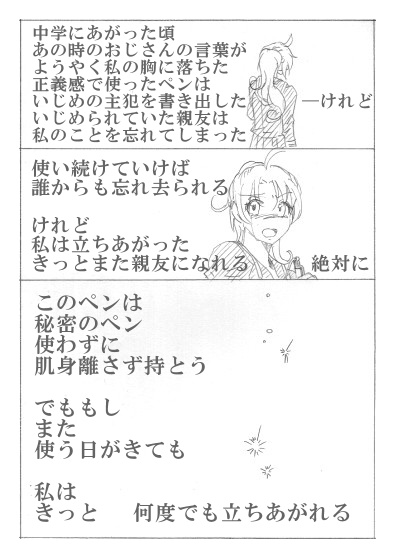 中学にあがった頃
あの時のおじさんの言葉が
ようやく私の胸に落ちた
正義感で使ったペンは
いじめの主犯を書き出した ―けれど
いじめられていた親友は
私のことを忘れてしまった
使い続けていけば
誰からも忘れ去られる
けれど
私は立ちあがった
きっとまた親友になれる 絶対に
このペンは
秘密のペン
使わずに
肌身離さず持とう
でももし
また
使う日がきても
私は
きっと 何度でも立ちあがれる